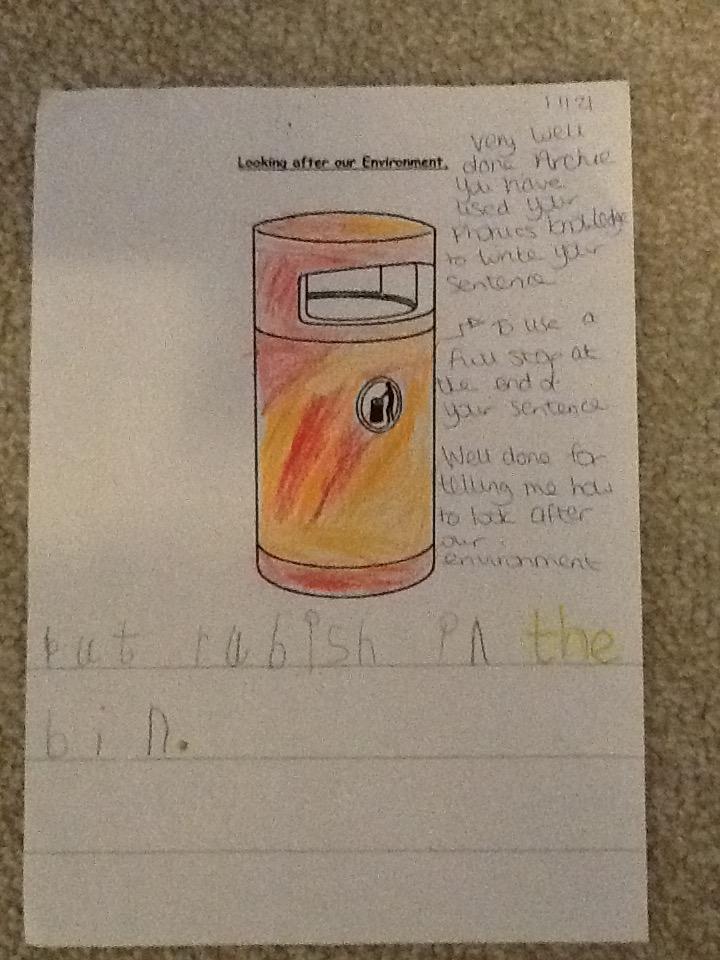 Looking after our Environment.
very well
done Archie
You have
used your
Phonics knowledge
to write your
sentence
To use a
full stop at
the end of
your sentence
Well done for
telling me how
to look after
our
environment
put rabish in the
bin.